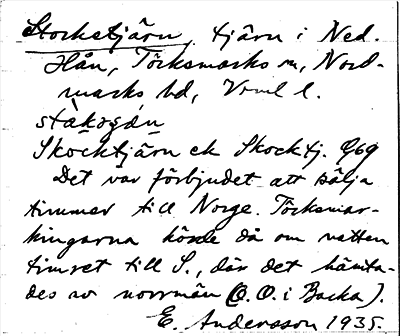 Stockstjärn, tjärn i Ned.
Hån, Töcksmarks sn, Nord-
marks hd, Vrml l.
Skocktjärn ek Skocktj. Q69
Det var förbjudet att sälja
timmer till Norge. Töcksmar-
kingarna körde då om natten
timret till S., där det hämta-
des av norrmän (O. O. i Backa).
E. Andersson 1935.